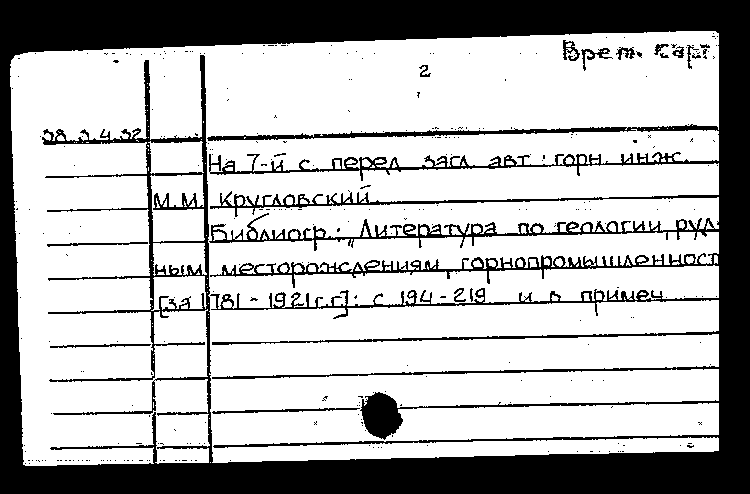 Врем. карт
2
38 3.4.32
На 7-й с. перед загл. авт : горн. инж.
М.М. Кругловский.
Библиогр.: „Литература по геологии, руд-
ным месторождениям, горнопромышленност
[за 1781 - 1921 г.г.]: с 194 - 219 и в примеч